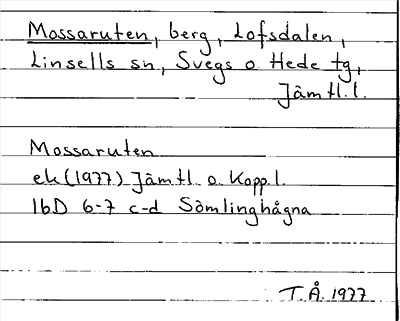 Mossaruten, berg, Lofsdalen,
Linsells sn, Svegs o Hede tg,
Jämtl.l.
Mossaruten
ek (1977) Jämtl. o. Kopp.l.
16D 6-7 c-d Sömlinghågna
T.Å. 1977